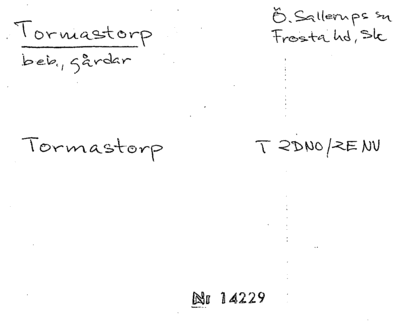 Tormastorp
beb., gårdar
Ö. Sallerups sn
Frosta hd, Sk
Tormastorp
T 2DNO/2ENV
Nr 14229